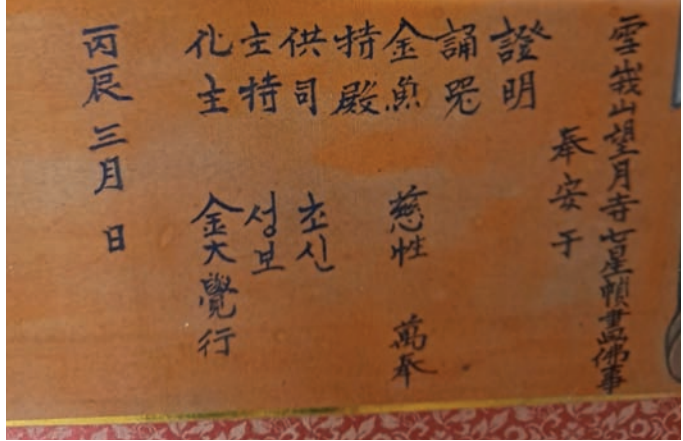 雪峩山望月寺七星幀畵佛事
奉安于
證明
誦咒
金魚 慈性 萬奉
特殿
供司 초신
主特 성보
化主 金大覺行
丙辰三月 日